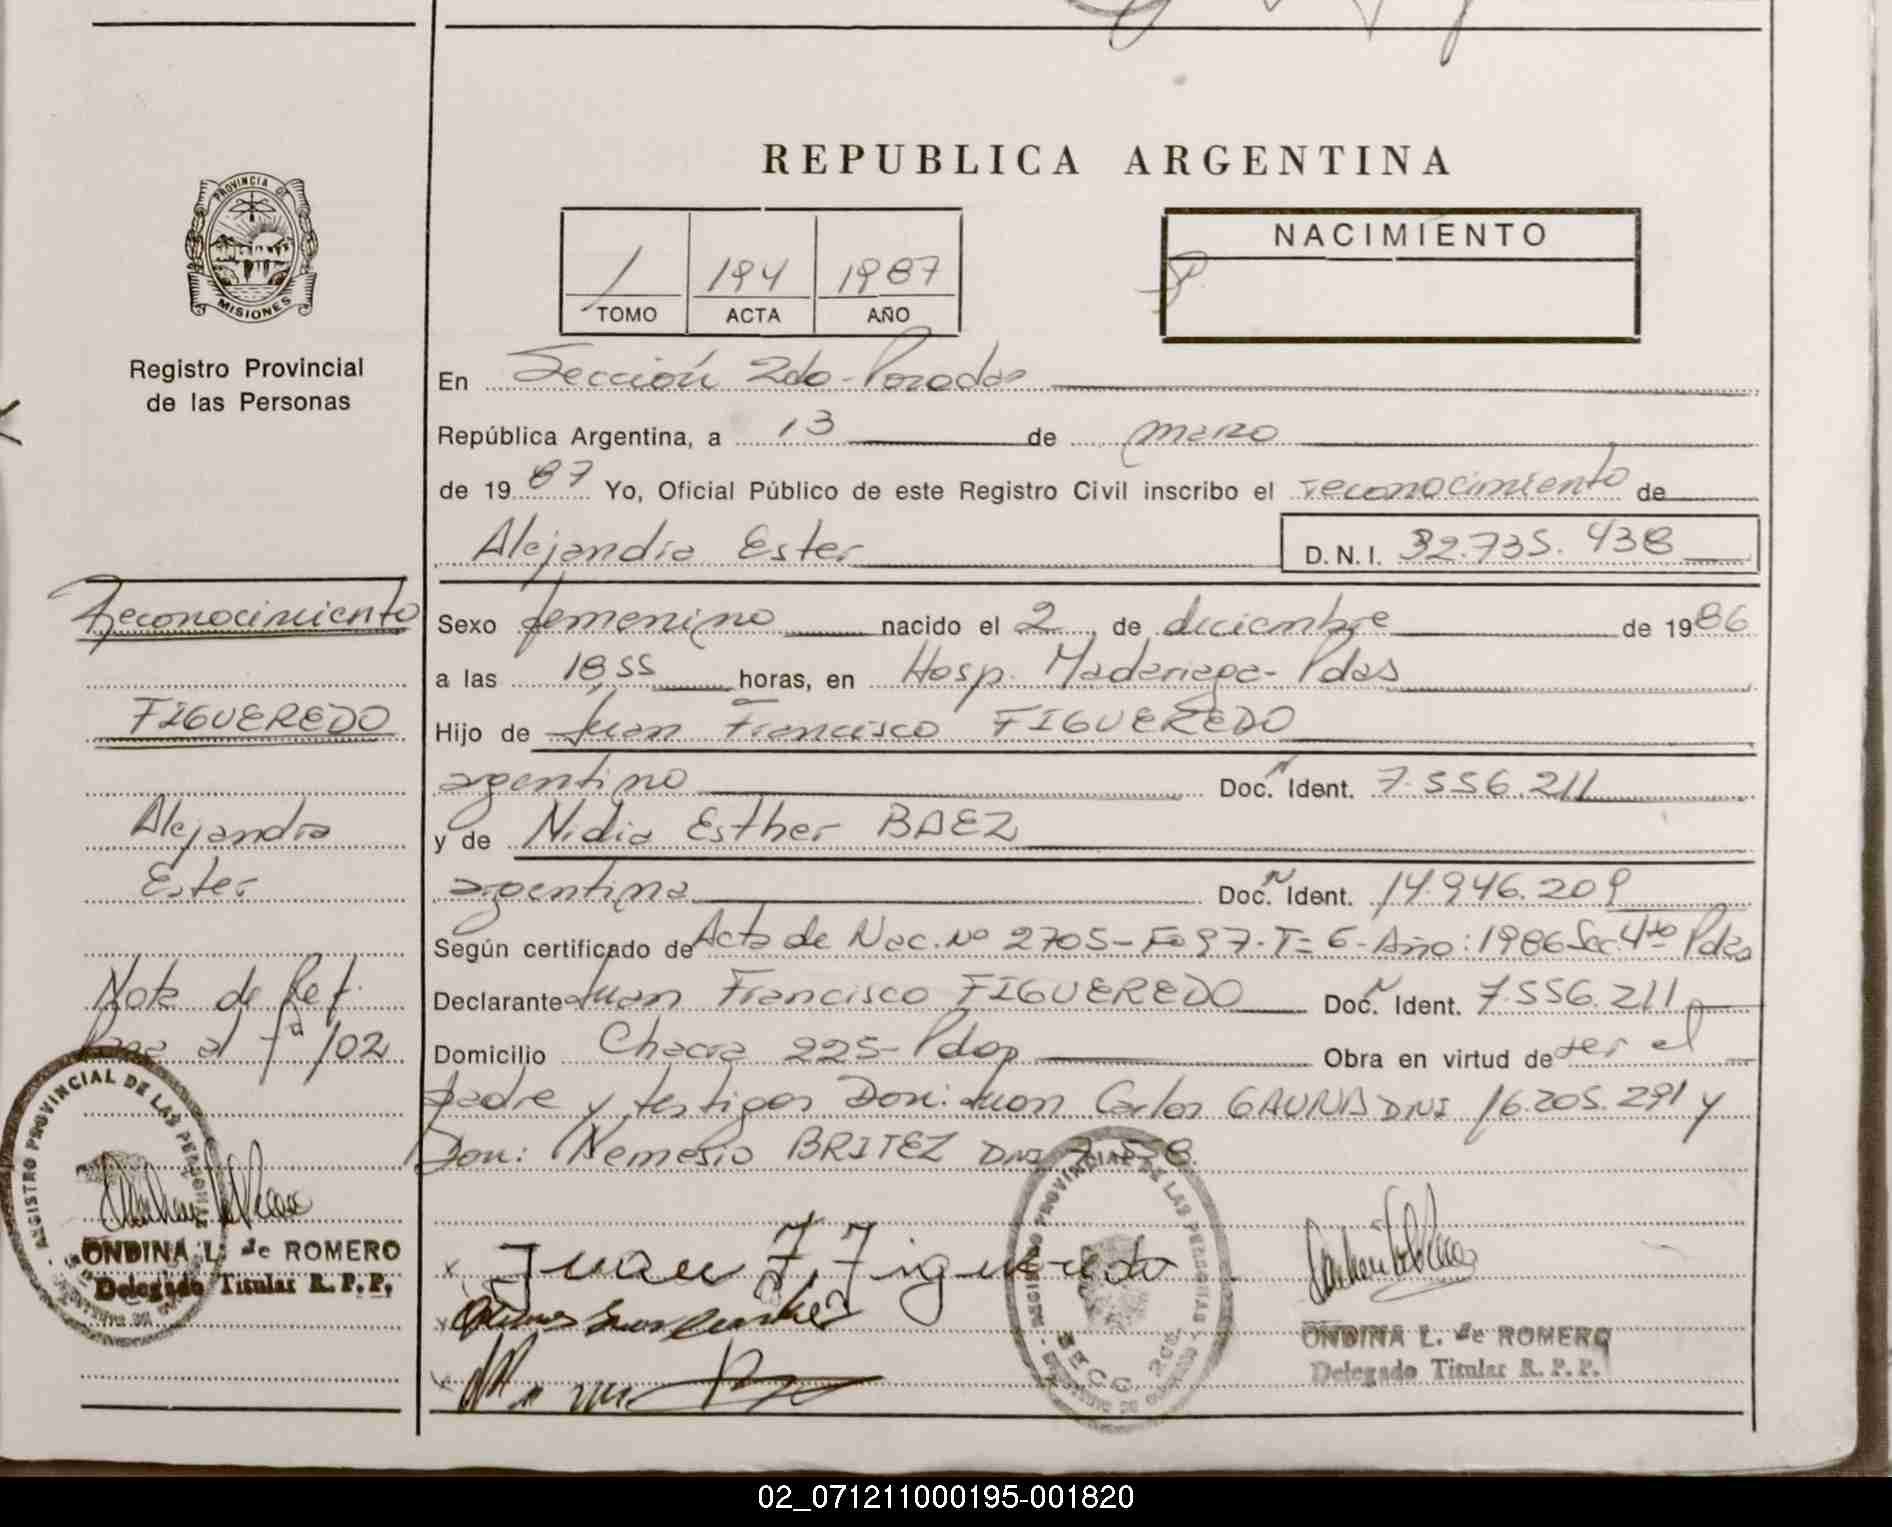 REPUBLICA ARGENTINA
PROVINCIA DE
MISIONES
Registro Provincial
de las Personas
1 194 1987
TOMO ACTA AÑO
NACIMIENTO
En Sección 2do - Posadas
República Argentina, a 13 de marzo
de 1987 Yo, Oficial Público de este Registro Civil inscribo el reconocimiento de
Alejandra Ester D.N.I. 32.735.438
Sexo femenino nacido el 2 de diciembre de 1986
a las 18,55 horas, en Hosp. Madariaga - Pdas
Hijo de Juan Francisco FIGUEREDO
argentino Doc. Ident. 7.556.211
y de Nidia Esther BAEZ
argentina Doc. Ident. 14.946.209
Según certificado de Acta de Nac. Nº 2705 - Fº 97 - T= 6 - Año: 1986 Sec. 4ta Pdas
Declarante Juan Francisco FIGUEREDO Doc. Ident. 7.556.211
Domicilio Chacra 225 - Pdas Obra en virtud de ser el
padre y testigos Don: Juan Carlos GAUNA DNI 16.205.291 y
Don: Nemesio BRITEZ DNI 7.558.
Reconocimiento
FIGUEREDO
Alejandra
Ester
Nota de Ref.
Pasa al Fº /02
REGISTRO PROVINCIAL DE LAS PERSONAS
ONDINA L. de ROMERO
Delegado Titular R. P. P.
x Juan F. Figueredo
x
x
REGISTRO PROVINCIAL DE LAS PERSONAS
SECC. 2da.
ONDINA L. de ROMERO
Delegado Titular R. P. P.
02_071211000195-001820